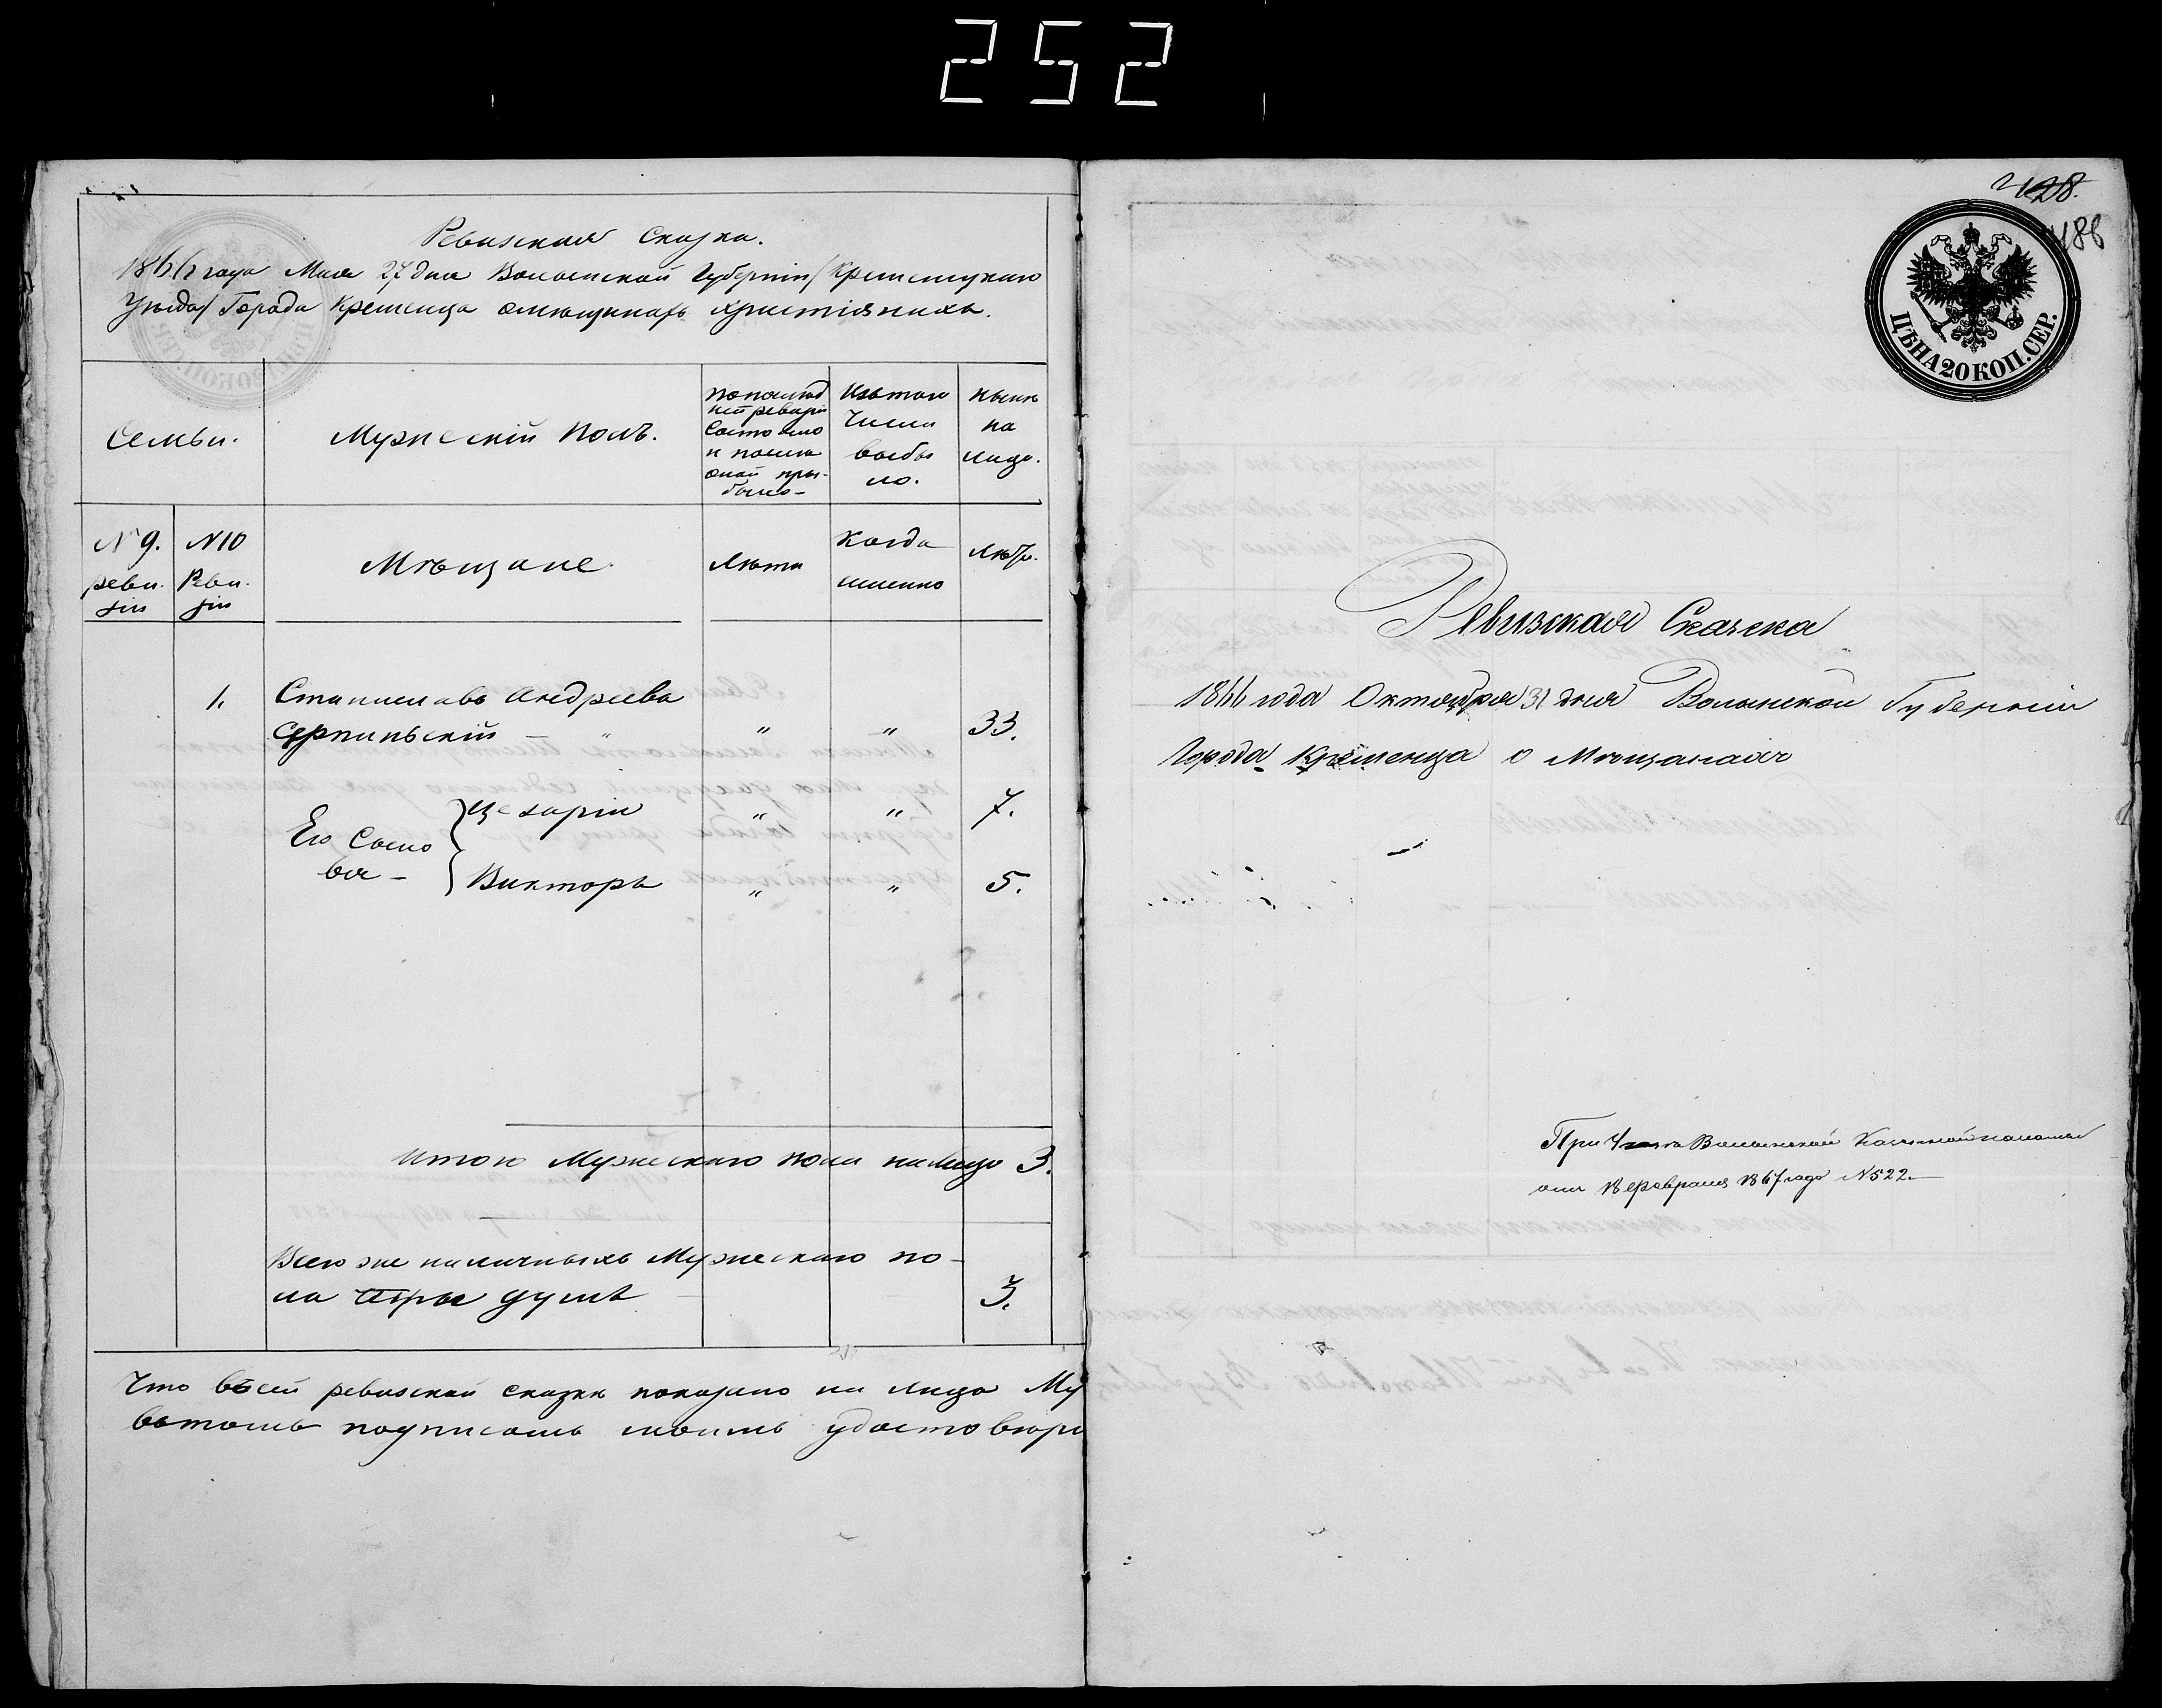 252
Ревизская Сказка.
1866 года Мая 27 дня Волынской Губернiи / Кременецкаго
Уѣзда / Города Кременца омѣщанахъ христiянахъ.
Семьи.
Мужескiй Полъ.
По послѣд
ней ревизiи
состояло
и после
оной при-
было-
Изътого
Числа
выбы
ло.
Нынѣ
на
лицо.
№ 9.
реви.
зiи
№10
Реви.
зiи
Мѣщане.
Лѣта
Когда
именно
Лѣта.
1. Станиславъ Андреевъ
Серпиньскiй — " " " 33.
Его Сыно
вья -
Цезарiй " " 7.
Викторъ " " 5.
Итого Мужескаго пола налицо 3.
Всего же наличныхъ Мужескаго по-
ла три души 3.
Что въсей ревизской сказкѣ показано на лицо Му
вътомъ подписомъ моимъ удостовѣря
128.
488
ЦѢНА 20 КОП. СЕР.
Ревизская Сказка
1866 года Октября 31 дня Волынской Губернiи
Города Кременца о Мѣщанахъ
При Волынской Казенной палаты
отъ 18 февраля 1867 года №522.—